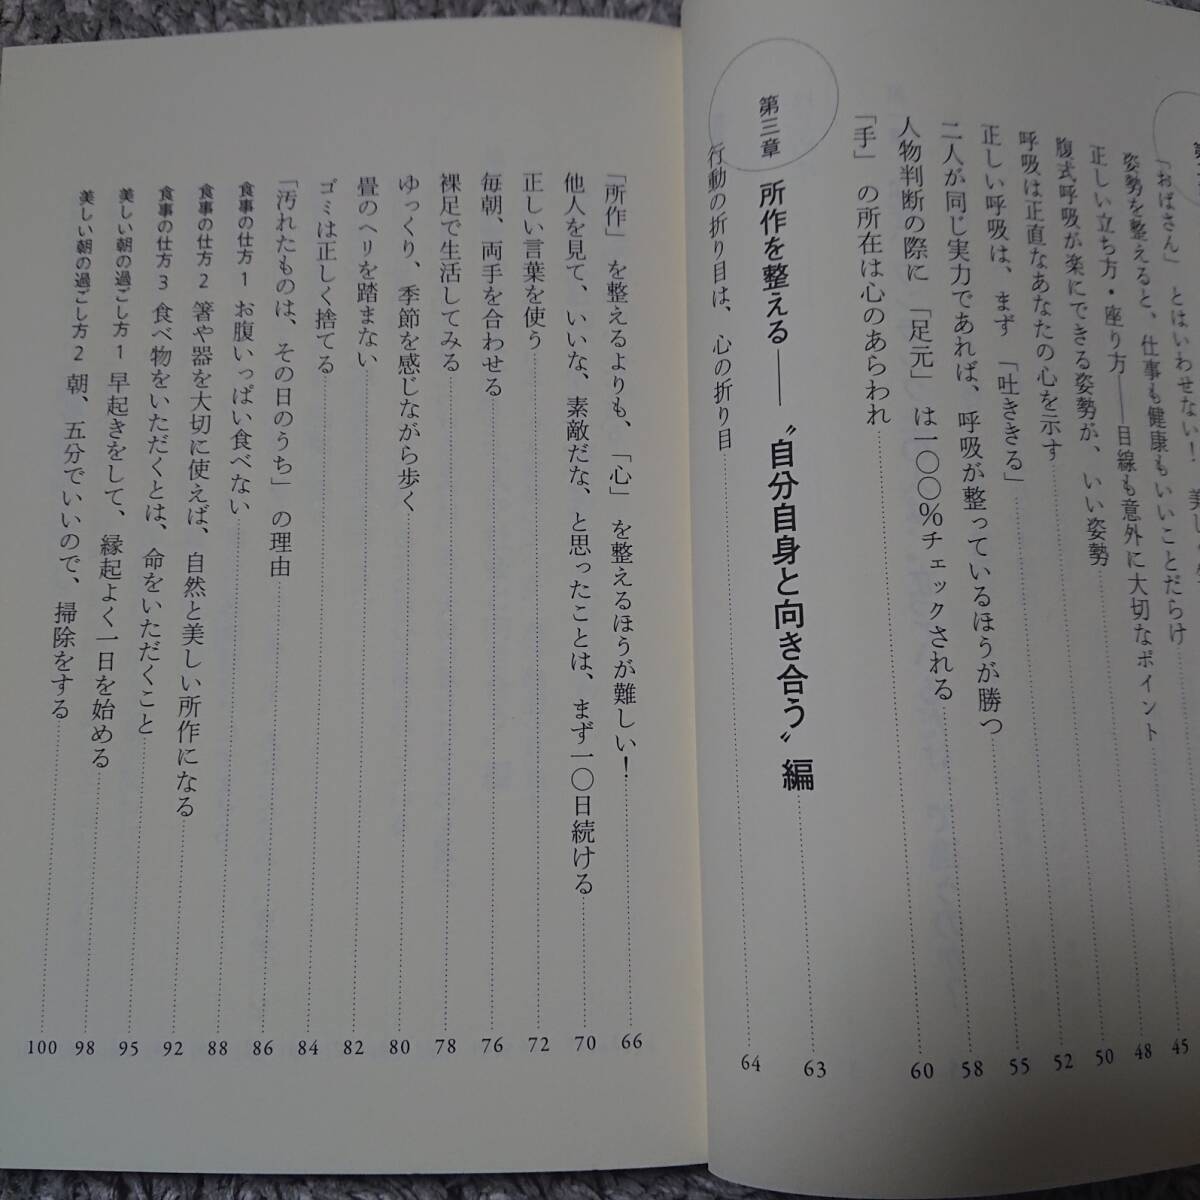 「おばさん」とはいわせない！
姿勢を整えると、仕事も健康もいいことだらけ
正しい立ち方・座り方――目線も意外に大切なポイント 45
腹式呼吸が楽にできる姿勢が、いい姿勢 48
呼吸は正直なあなたの心を示す 50
正しい呼吸は、まず「吐ききる」 52
二人が同じ実力であれば、呼吸が整っているほうが勝つ 55
人物判断の際に「足元」は一〇〇％チェックされる 58
「手」の所在は心のあらわれ 60
第三章 所作を整える――〝自分自身と向き合う〟編 63
行動の折り目は、心の折り目 64
「所作」を整えるよりも、「心」を整えるほうが難しい！ 66
他人を見て、いいな、素敵だな、と思ったことは、まず一〇日続ける 70
正しい言葉を使う 72
毎朝、両手を合わせる 76
裸足で生活してみる 78
ゆっくり、季節を感じながら歩く 80
畳のヘリを踏まない 82
ゴミは正しく捨てる 84
「汚れたものは、その日のうち」の理由 86
食事の仕方1 お腹いっぱい食べない 88
食事の仕方2 箸や器を大切に使えば、自然と美しい所作になる 92
食事の仕方3 食べ物をいただくとは、命をいただくこと 95
美しい朝の過ごし方1 早起きをして、縁起よく一日を始める 98
美しい朝の過ごし方2 朝、五分でいいので、掃除をする 100